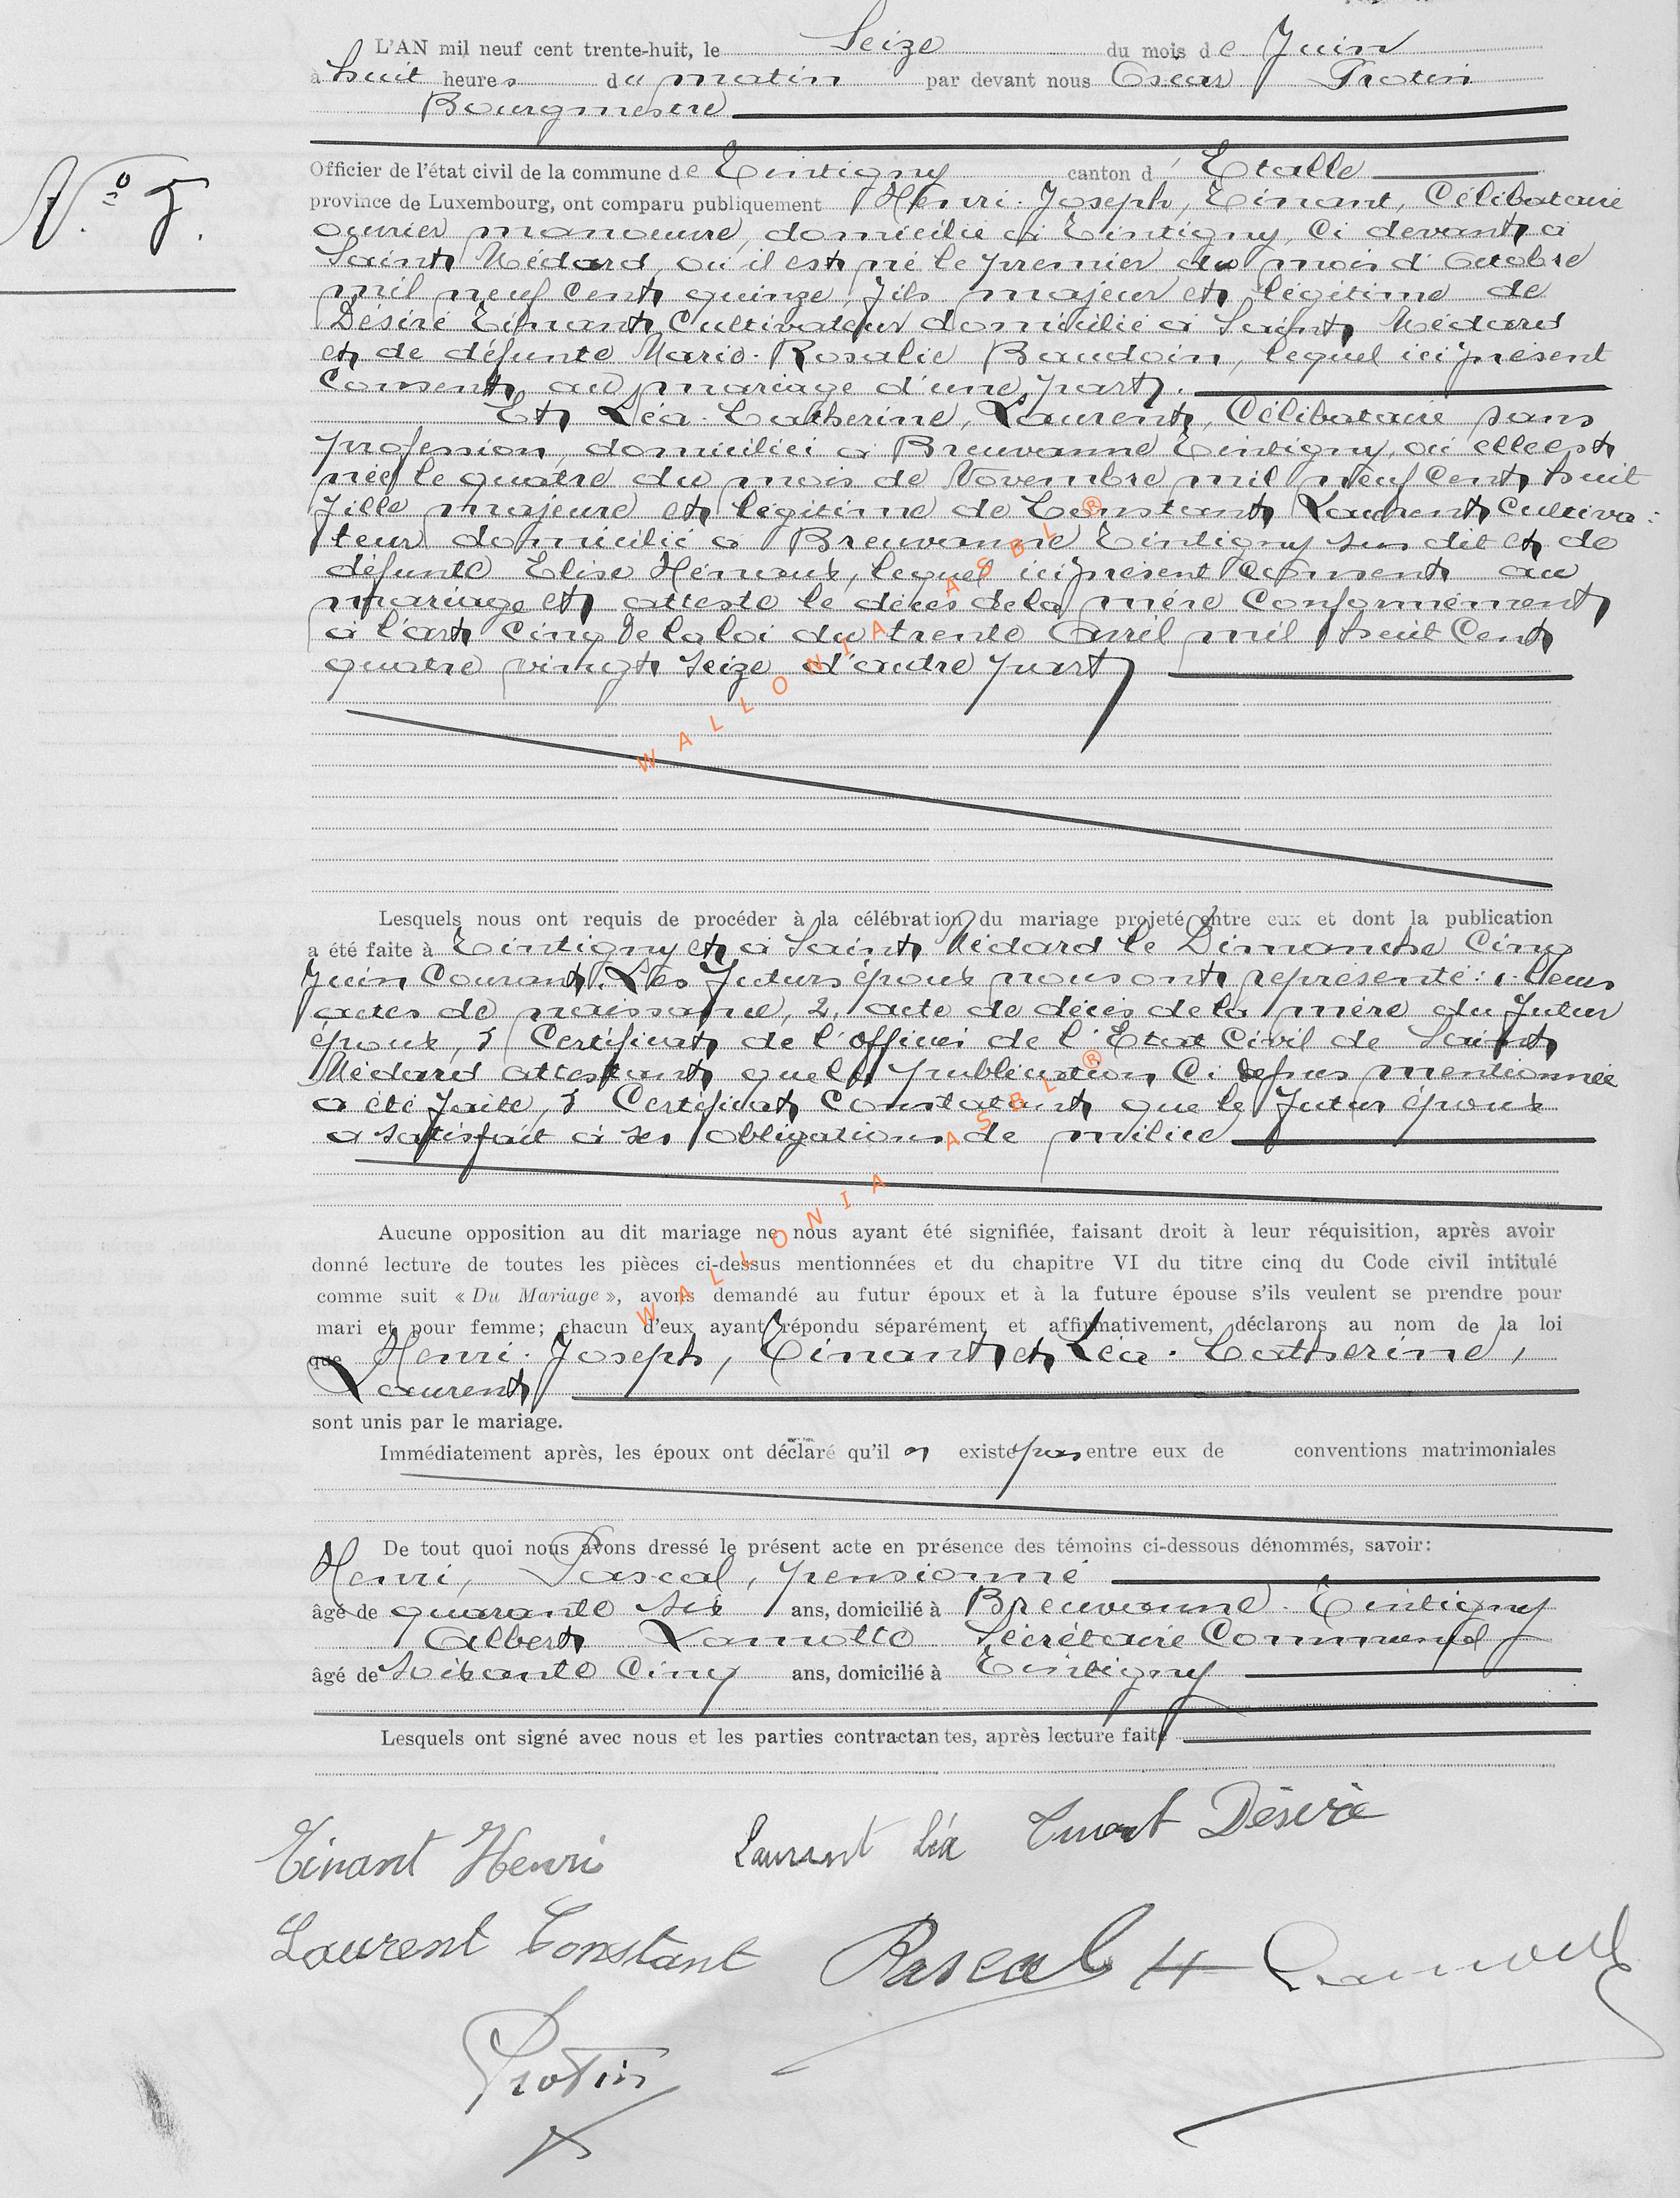 L'AN mil neuf cent trente-huit, le Seize du mois de Juin
à huit heures du matin par devant nous Oscar Protin
Bourgmestre
Officier de l'état civil de la commune de Tintigny canton d' Etalle
N.º 5.
province de Luxembourg, ont comparu publiquement Henri. Joseph, Tinant, Célibataire
ouvrier manoeuvre, domicilié à Tintigny, Ci devant à
Saint Médard, où il est né le premier du mois d'Octobre
mil neuf Cent quinze, fils majeur et légitime de
Désiré Tinant, Cultivateur domicilié à Saint Médard
et de défunte Marie. Rosalie Baudoin, lequel ici présent
Consent au mariage d'une part.
Et Léa. Catherine, Laurent, Célibataire sans
profession, domiciliéi à Breuvanne Tintigny, où elle est
née le quatre du mois de Novembre mil neuf Cent huit
fille majeure et légitime de Constant Laurent Cultiva:
teur domicilié à Breuvanne Tintigny sus dit et de
défunte Elise Hémoux, lequel ici présent Consent au
mariage et atteste le décès de la mère Conformément
à l'art Cinq de la loi du trente Avril mil huit Cent
quatre vingt seize d'autre part
Lesquels nous ont requis de procéder à la célébration du mariage projeté entre eux et dont la publication
a été faite à Tintigny et à Saint Médard le Dimanche Cinq
Juin Courant. Les futurs époux nous ont représenté: 1. leurs
actes de naissance, 2, acte de décès de la mère du futur
époux, 3 Certificat de l'officier de l'Etat Civil de Saint
Médard attestant que la publication Ci dessus mentionnée
a été faite, 3 Certificat Constatant que le futur époux
a satisfait à ses obligations de milice
Aucune opposition au dit mariage ne nous ayant été signifiée, faisant droit à leur réquisition, après avoir
donné lecture de toutes les pièces ci-dessus mentionnées et du chapitre VI du titre cinq du Code civil intitulé
comme suit « Du Mariage », avons demandé au futur époux et à la future épouse s'ils veulent se prendre pour
mari et pour femme; chacun d'eux ayant répondu séparément et affirmativement, déclarons au nom de la loi
que Henri. Joseph, Tinant et Léa. Catherine,
Laurent
sont unis par le mariage.
Immédiatement après, les époux ont déclaré qu'il n existe pas entre eux de conventions matrimoniales
De tout quoi nous avons dressé le présent acte en présence des témoins ci-dessous dénommés, savoir:
Henri, Pascal, pensionné
âgé de quarante six ans, domicilié à Breuvanne. Tintigny
Albert Lamotte Sécrétaire Communal
âgé de soixante Cinq ans, domicilié à Tintigny
Lesquels ont signé avec nous et les parties contractantes, après lecture faite
Tinant Henri Laurent Léa Tinant Désiré
Laurent Constant Pascal H
Protin
WALLONIA ASBL ®
WALLONIA ASBL ®